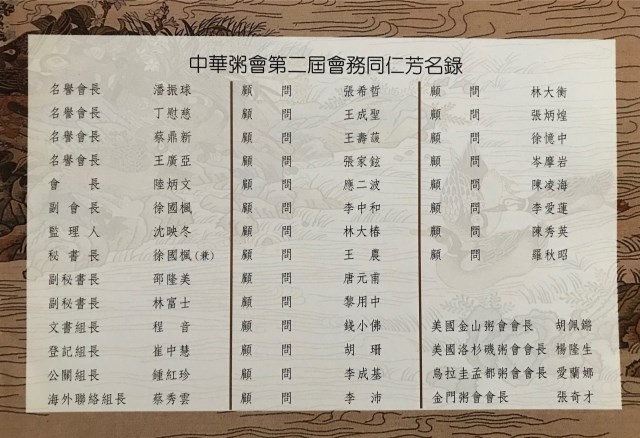 中華粥會第二屆會務同仁芳名錄
名譽會長 潘振球
名譽會長 丁慰慈
名譽會長 蔡鼎新
名譽會長 王廣亞
會長 陸炳文
副會長 徐國楓
監理人 沈映冬
秘書長 徐國楓(兼)
副秘書長 邵隆美
副秘書長 林富士
文書組長 程音
登記組長 崔中慧
公關組長 鍾紅珍
海外聯絡組長 蔡秀雲
顧問 張希哲
顧問 王成聖
顧問 王壽
顧問 張家鉉
顧問 應二波
顧問 李中和
顧問 林大椿
顧問 王農
顧問 唐元甫
顧問 黎用中
顧問 錢小佛
顧問 胡珊
顧問 李成基
顧問 李沛
顧問 林大衡
顧問 張炳煌
顧問 徐憶中
顧問 岑摩岩
顧問 陳凌海
顧問 李愛蓮
顧問 陳秀英
顧問 羅秋昭
美國金山粥會會長 胡佩鏘
美國洛杉磯粥會會長 楊隆生
烏拉圭孟都粥會會長 愛蘭娜
金門粥會會長 張奇才